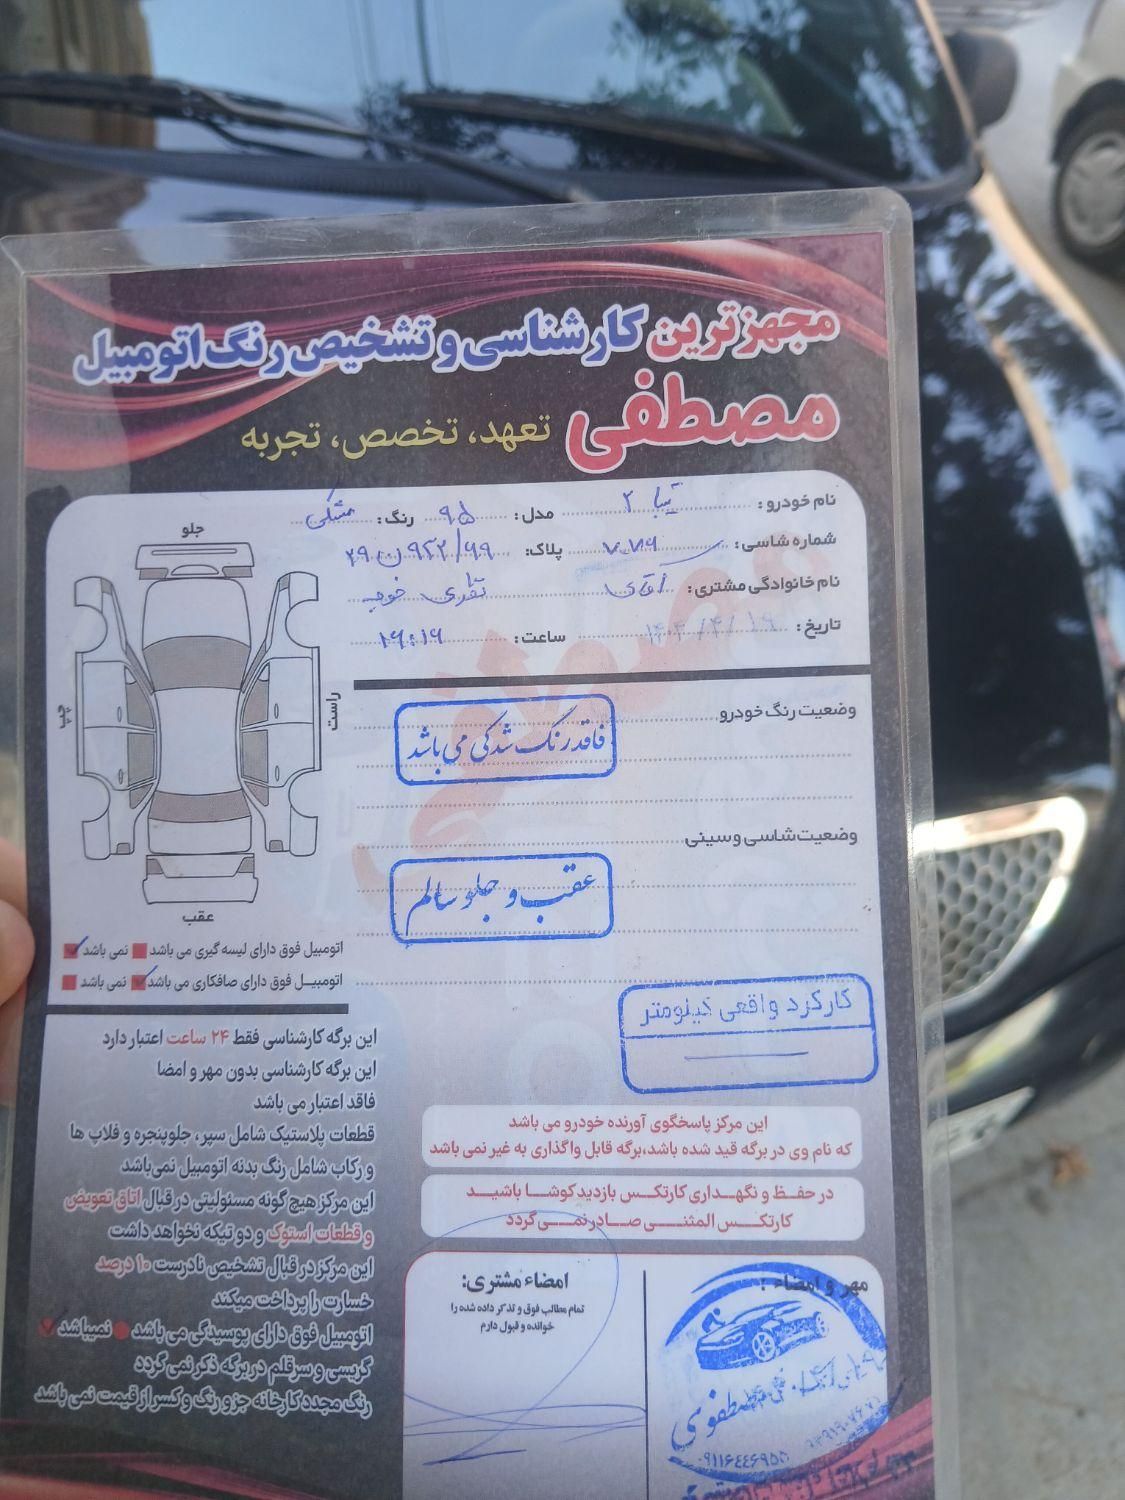 مجهزترین کارشناسی و تشخیص رنگ اتومبیل
مصطفی تعهد، تخصص، تجربه
نام خودرو: تیبا ۲ مدل: ۹۵ رنگ: مشکی
شماره شاسی: پلاک:
نام خانوادگی مشتری: آقای تقدی خوجه
تاریخ: ۱۴۰۲/۴/۱۹ ساعت: ۱۹:۱۹
جلو
چپ
راست
عقب
وضعیت رنگ خودرو
فاقد رنگ شدگی می باشد
وضعیت شاسی و سینی
عقب و جلو سالم
اتومبیل فوق دارای لیسه گیری می باشد نمی باشد
اتومبیل فوق دارای صافکاری می باشد نمی باشد
کارکرد واقعی کیلومتر
این برگه کارشناسی فقط ۲۴ ساعت اعتبار دارد
این برگه کارشناسی بدون مهر و امضا
فاقد اعتبار می باشد
قطعات پلاستیک شامل سپر، جلوپنجره و فلاپ ها
و رکاب شامل رنگ بدنه اتومبیل نمی‌باشد
این مرکز هیچ گونه مسئولیتی در قبال اتاق تعویض
و قطعات استوک و دو تیکه نخواهد داشت
این مرکز در قبال تشخیص نادرست ۱۰ درصد
خسارت را پرداخت میکند
اتومبیل فوق دارای پوسیدگی می باشد نمیباشد
گریسی و سرقلم در برگه ذکر نمی گردد
رنگ مجدد کارخانه جزو رنگ و کسر از قیمت نمی باشد
این مرکز پاسخگوی آورنده خودرو می باشد
که نام وی در برگه قید شده باشد، برگه قابل واگذاری به غیر نمی باشد
در حفظ و نگهداری کارتکس بازدید کوشا باشید
کارتکس المثنی صادر نمی گردد
امضاء مشتری:
تمام مطالب فوق و تذکر داده شده را
خوانده و قبول دارم
مهر و امضاء:
۰۹۱۱۶۴۴۶۹۵۵